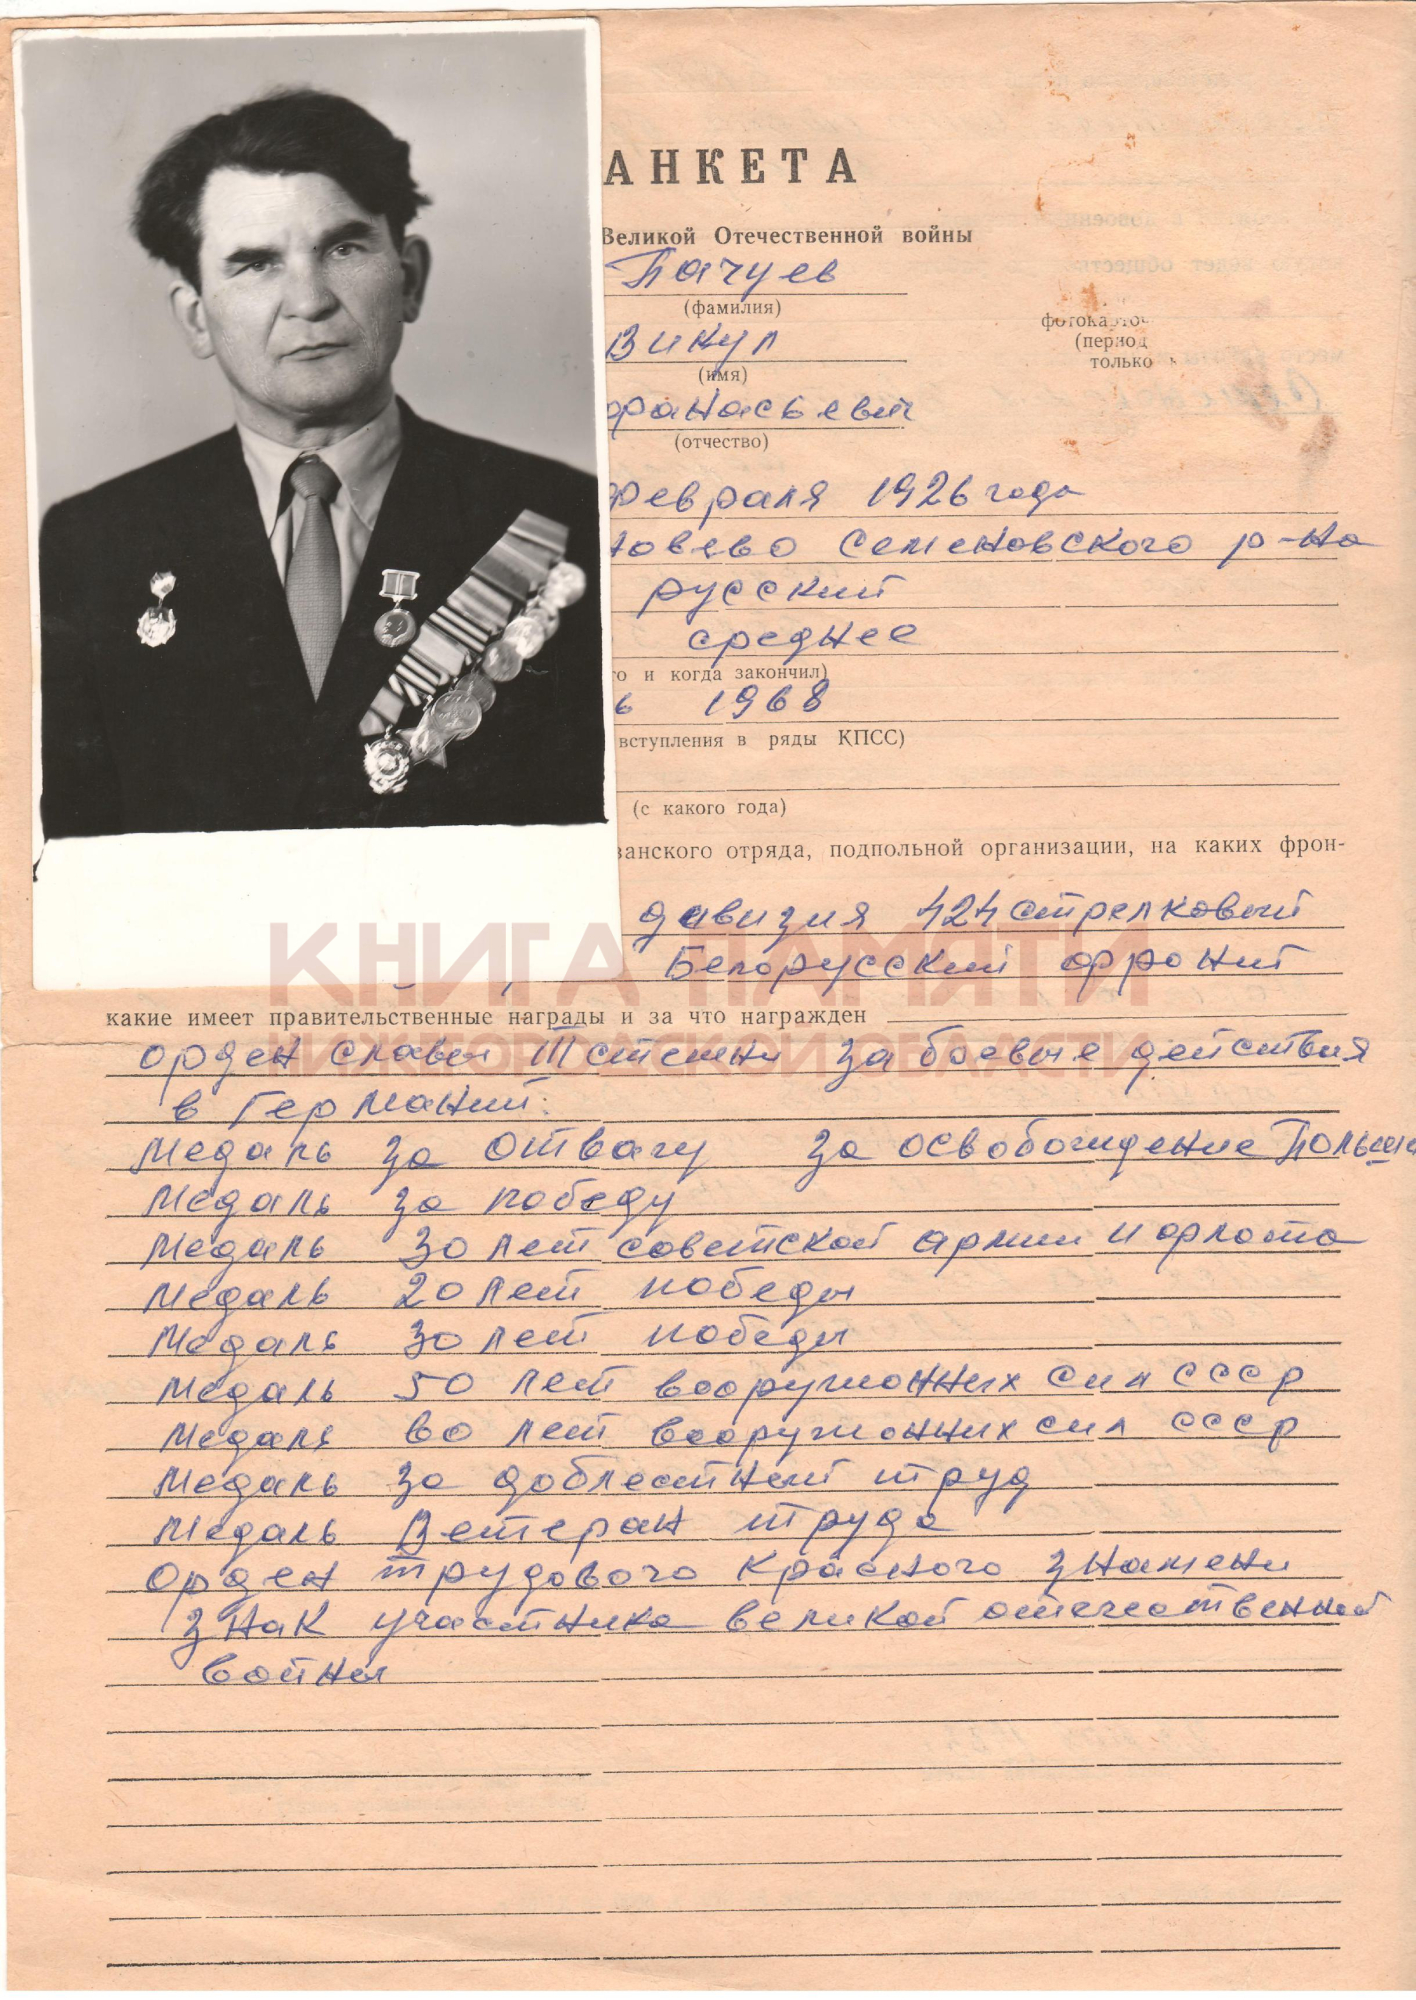 АНКЕТА
Великой Отечественной войны
Пачуев
(фамилия)
фотокарточ
Викул
(период
только
(имя)
фанасьевич
(отчество)
февраля 1926 года
новево Семеновского р-на
русский
среднее
го и когда закончил)
ь 1968
вступления в ряды КПСС)
(с какого года)
занского отряда, подпольной организации, на каких фрон-
дивизия 424 стрелковый
Белорусский фронт
КНИГА ПАМЯТИ
какие имеет правительственные награды и за что награжден
НИЖЕГОРОДСКОЙ ОБЛАСТИ
орден славы III степени за боевые действия
в Германии.
Медаль за отвагу за освобождение Польши
Медаль за победу
Медаль 30 лет советской армии и флота
Медаль 20 лет победы
Медаль 30 лет победы
Медаль 50 лет вооружонных сил СССР
Медаля 60 лет вооружонних сил СССР
Медаль за доблестный труд
Медаль Ветеран труда
Орден трудового Красного знамени
знак участника великой отечественной
войны